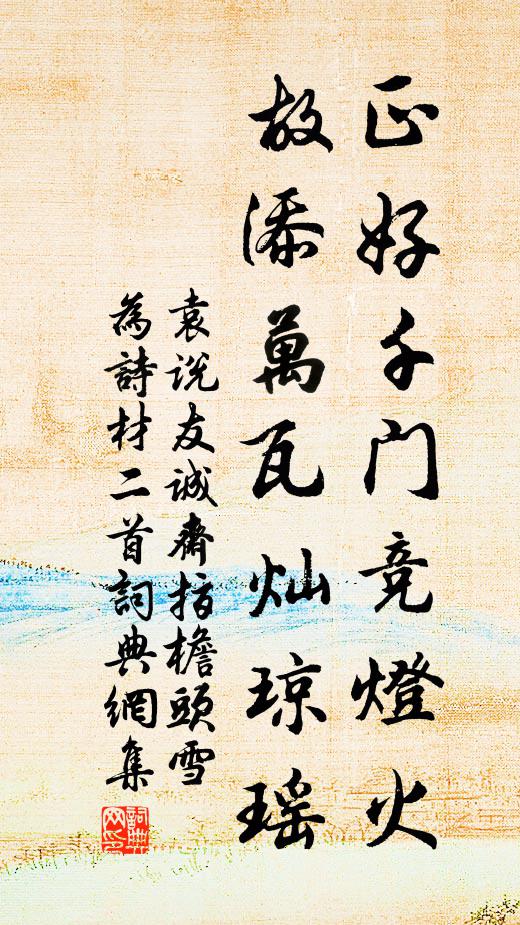 正好千门竞燈火
故添萬瓦灿琼瑶
袁说友诚齋指檐頭雪
為詩材二首詞典網集
詞典
网